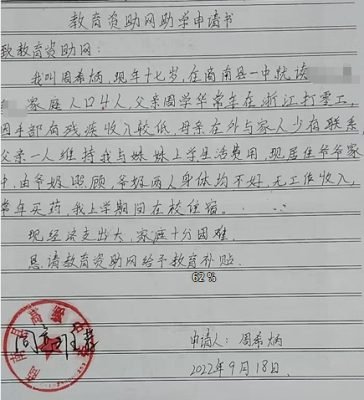 教育资助网助学申请书
致教育资助网：
我叫周希炳，现年十七岁，在商南县一中就读
家庭人口4人，父亲周学华常年在浙江打零工，
因手部有残疾收入较低，母亲在外与家人少有联系
父亲一人维持我与妹妹上学生活费用，现居住爷爷家
中，由爷奶照顾，爷奶两人身体均不好，无工作收入，
常年买药，我上学期间在校住宿。
现经济支出大，家庭十分困难。
恳请教育资助网给予教育补贴
62%
申请人：周希炳
2022年9月18日.